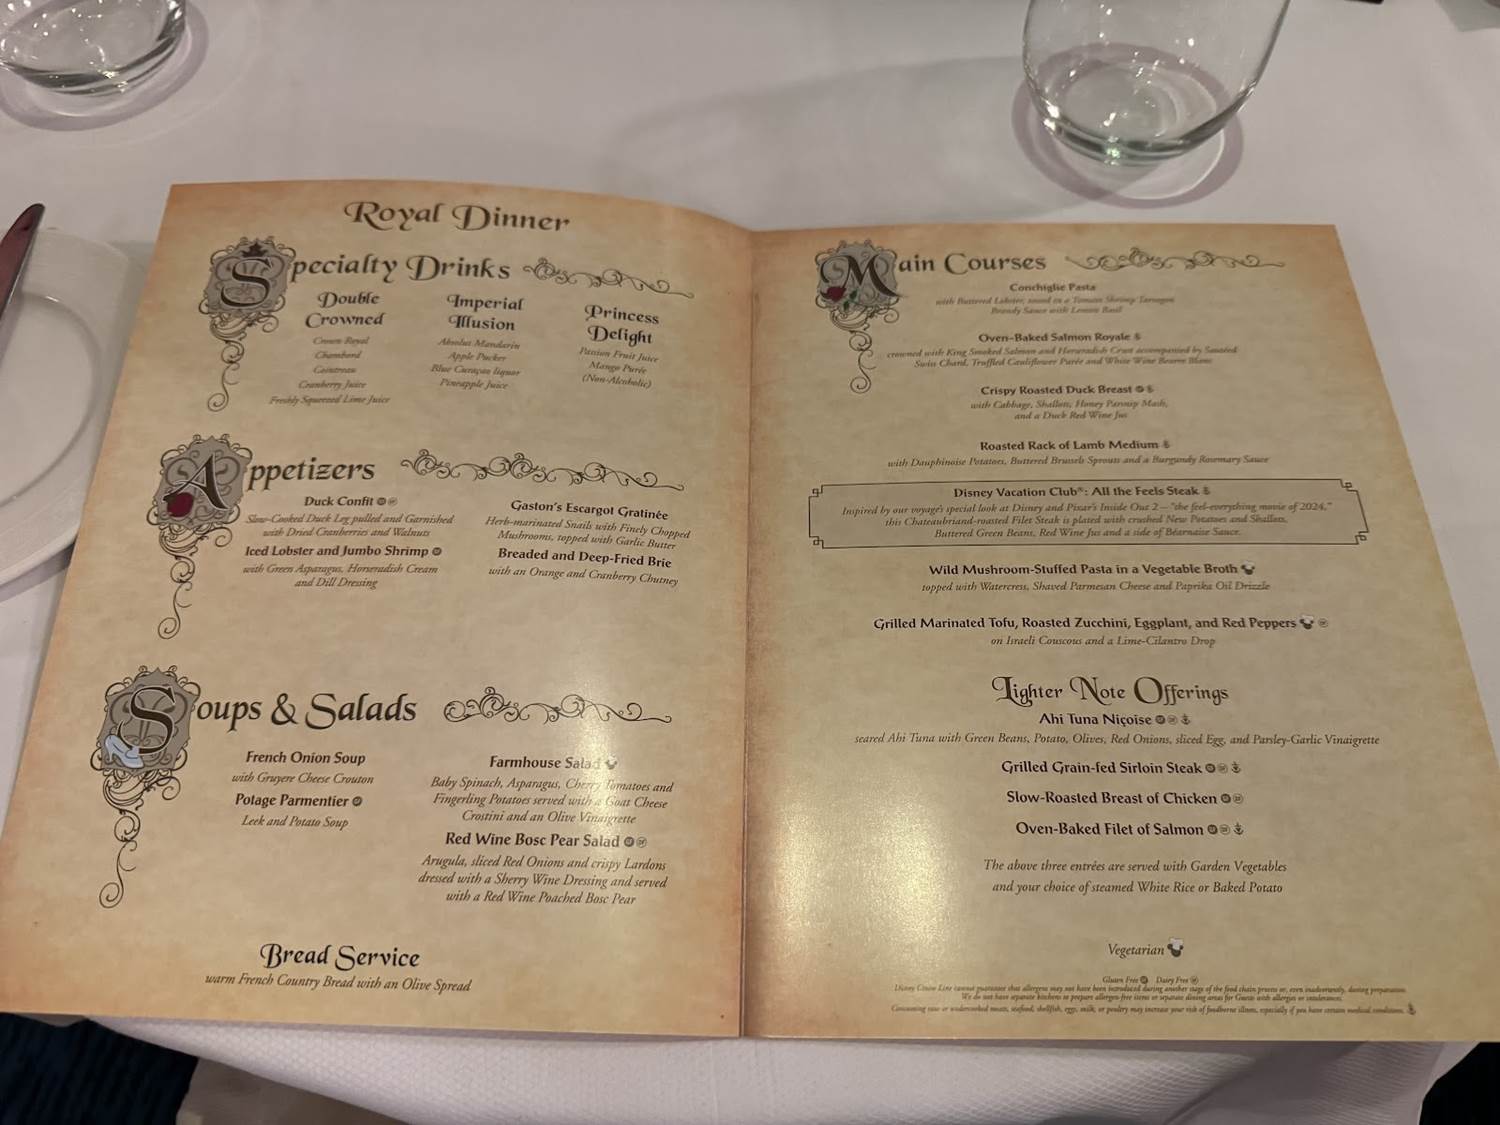 Royal Dinner
Specialty Drinks
Double
Crowned
Crown Royal
Chambord
Cointreau
Cranberry Juice
Freshly Squeezed Lime Juice
Imperial
Illusion
Absolut Mandarin
Apple Pucker
Blue Curaçao liquor
Pineapple Juice
Princess
Delight
Passion Fruit Juice
Mango Purée
(Non-Alcoholic)
Appetizers
Duck Confit
Slow-Cooked Duck Leg pulled and Garnished
with Dried Cranberries and Walnuts
Iced Lobster and Jumbo Shrimp
with Green Asparagus, Horseradish Cream
and Dill Dressing
Gaston's Escargot Gratinée
Herb-marinated Snails with Finely Chopped
Mushrooms, topped with Garlic Butter
Breaded and Deep-Fried Brie
with an Orange and Cranberry Chutney
Soups & Salads
French Onion Soup
with Gruyere Cheese Crouton
Potage Parmentier
Leek and Potato Soup
Farmhouse Salad
Baby Spinach, Asparagus, Cherry Tomatoes and
Fingerling Potatoes served with a Goat Cheese
Crostini and an Olive Vinaigrette
Red Wine Bosc Pear Salad
Arugula, sliced Red Onions and crispy Lardons
dressed with a Sherry Wine Dressing and served
with a Red Wine Poached Bosc Pear
Bread Service
warm French Country Bread with an Olive Spread
Main Courses
Conchiglie Pasta
with Buttered Lobster, tossed in a Tomato Shrimp Tarragon
Brandy Sauce with Lemon Basil
Oven-Baked Salmon Royale
crowned with King Smoked Salmon and Horseradish Crust accompanied by Sautéed
Swiss Chard, Truffled Cauliflower Purée and White Wine Beurre Blanc
Crispy Roasted Duck Breast
with Cabbage, Shallots, Honey Parsnip Mash,
and a Duck Red Wine Jus
Roasted Rack of Lamb Medium
with Dauphinoise Potatoes, Buttered Brussels Sprouts and a Burgundy Rosemary Sauce
Disney Vacation Club®: All the Feels Steak
Inspired by our voyage's special look at Disney and Pixar's Inside Out 2 – "the feel-everything movie of 2024,"
this Chateaubriand-roasted Filet Steak is plated with crushed New Potatoes and Shallots,
Buttered Green Beans, Red Wine Jus and a side of Béarnaise Sauce.
Wild Mushroom-Stuffed Pasta in a Vegetable Broth
topped with Watercress, Shaved Parmesan Cheese and Paprika Oil Drizzle
Grilled Marinated Tofu, Roasted Zucchini, Eggplant, and Red Peppers
on Israeli Couscous and a Lime-Cilantro Drop
Lighter Note Offerings
Ahi Tuna Niçoise
seared Ahi Tuna with Green Beans, Potato, Olives, Red Onions, sliced Egg, and Parsley-Garlic Vinaigrette
Grilled Grain-fed Sirloin Steak
Slow-Roasted Breast of Chicken
Oven-Baked Filet of Salmon
The above three entrées are served with Garden Vegetables
and your choice of steamed White Rice or Baked Potato
Vegetarian
Gluten Free Dairy Free
Disney Cruise Line cannot guarantee that allergens may not have been introduced during another stage of the food chain process or, even inadvertently, during preparation.
We do not have separate kitchens to prepare allergen-free items or separate dining areas for Guests with allergies or intolerances.
Consuming raw or undercooked meats, seafood, shellfish, eggs, milk, or poultry may increase your risk of foodborne illness, especially if you have certain medical conditions.